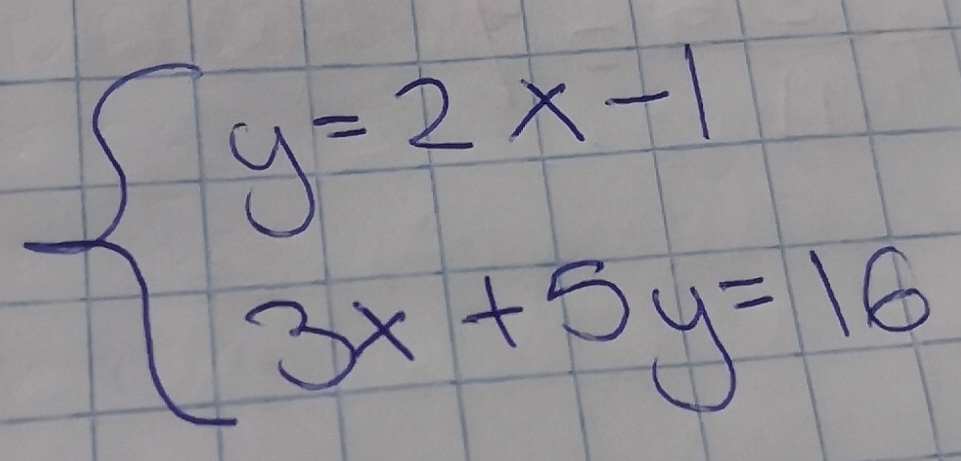 y = 2x - 1
3x + 5y = 16